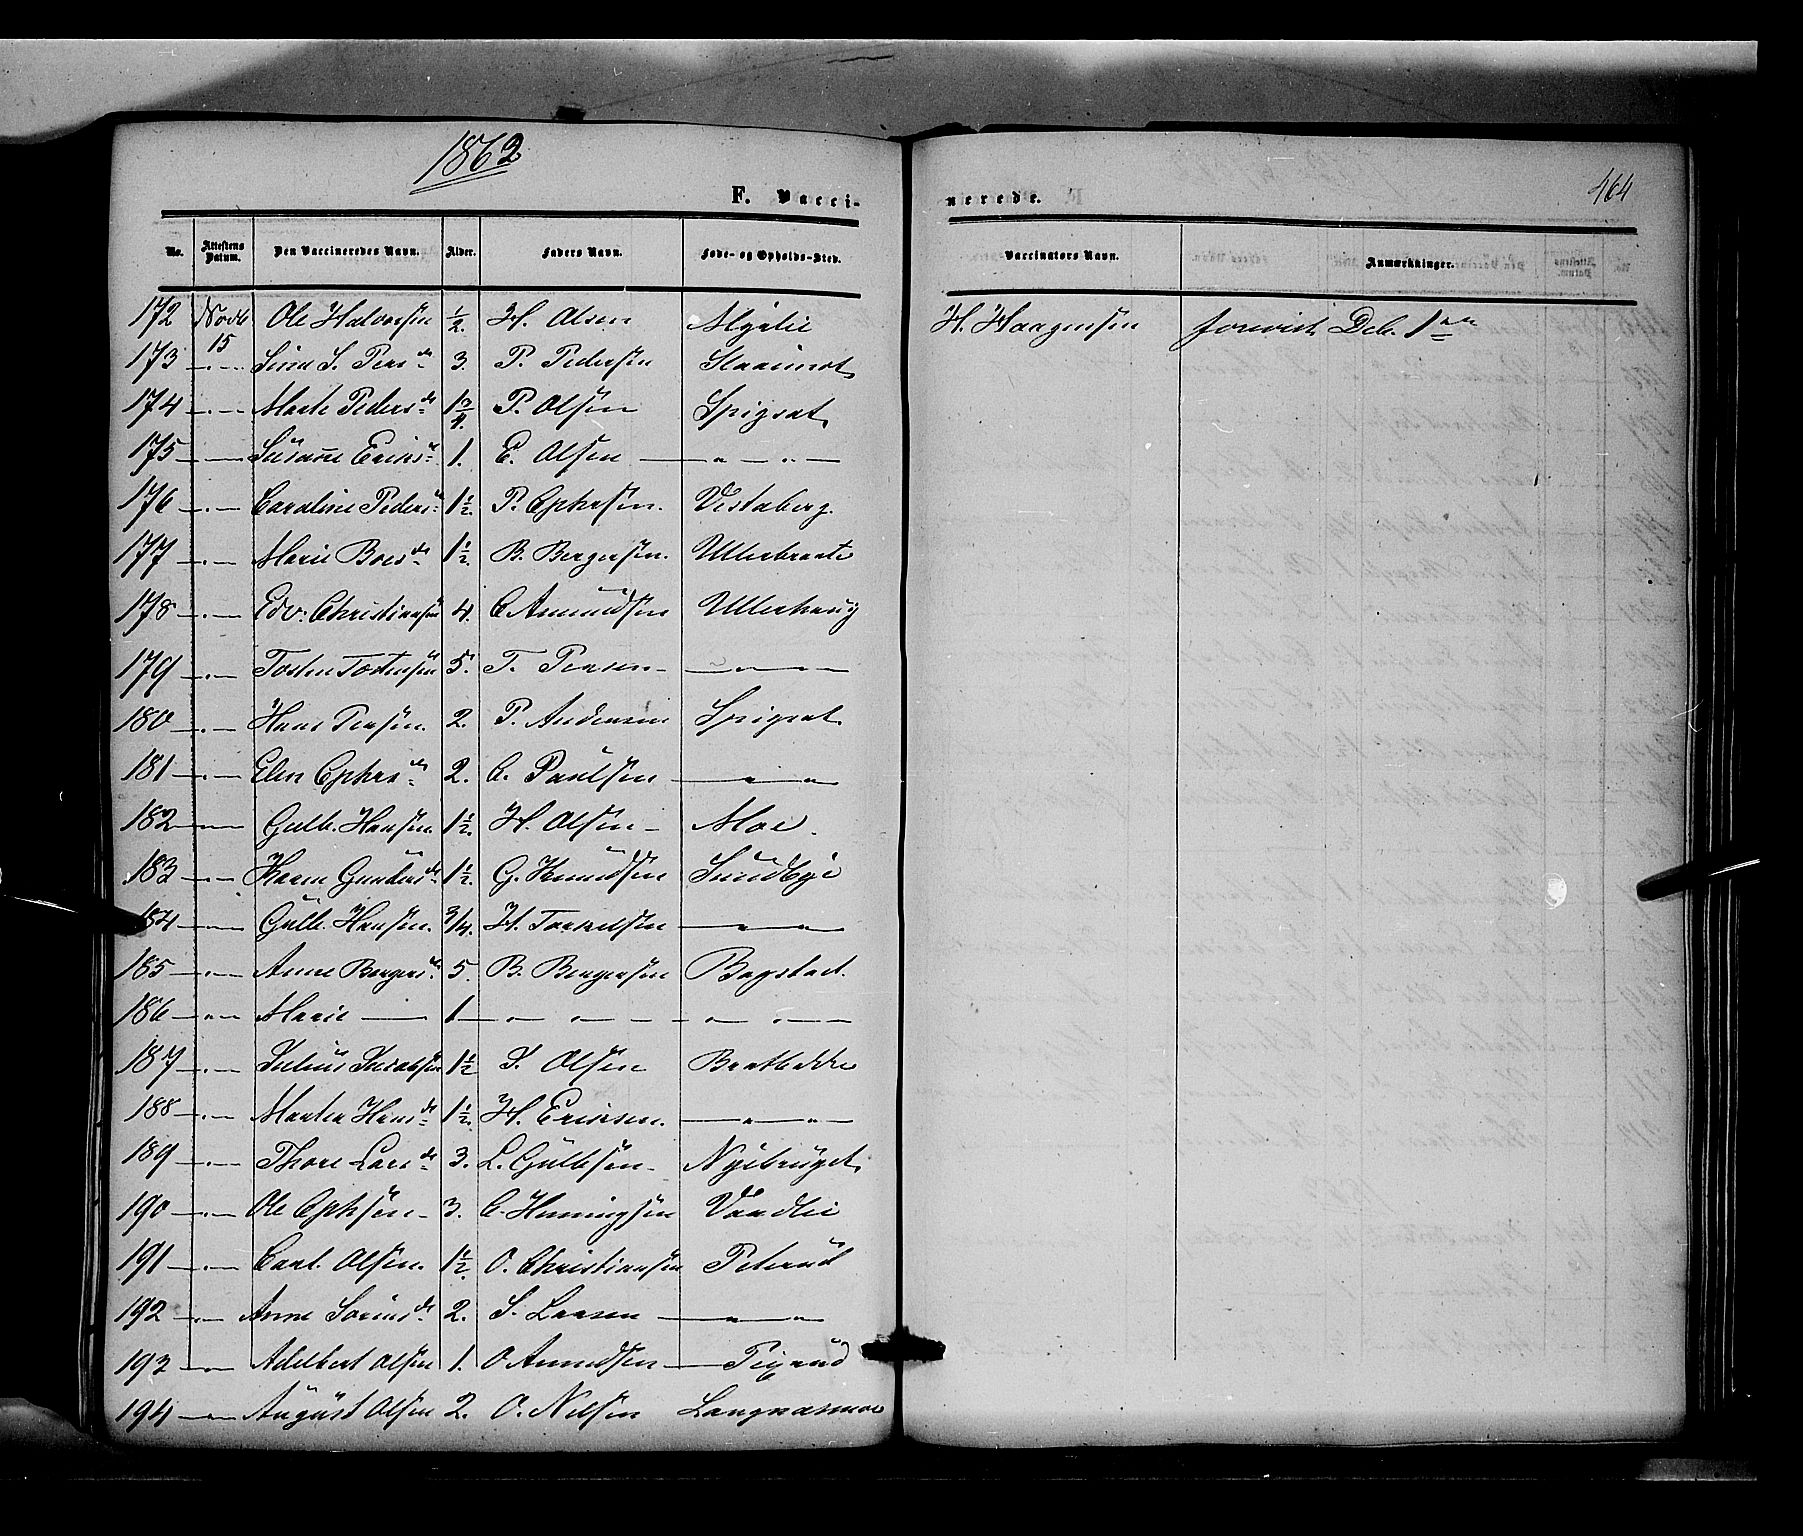 1862
464
F. Vacci-
nerede.
No. Attestens Datum. Den Vaccineredes Navn. Alder. Faders Navn. Føde- og Opholds-Sted. Vaccinators Navn. Anmærkninger.
172 Novbr 15 Ole Halvorsen 1/2. H. Olsen H. Haagensen forevist Deb. 1
173 " 3. P. Pedersen
174 " Marte Peders d. 1 3/4. P. Olsen Spigset
175 " Susanne Eriks d. 1. E. Olsen " "
176 " Caroline Peders d. 1 1/2. P. Ephrsen. Vestaberg
177 " Marie Boes d. 1 1/2. B. Bergersen. Ullerbraate
178 " Edv. Christiansen 4. C. Amundsen Ullerhaug
179 " Tosten 5. T. " "
180 " Hans Persen. 2. P. Andersen Spigset
181 " Elen Ephrs d. 2. E. Paulsen " "
182 " Gulb. Hansen. 1 1/2. H. Olsen Moe.
183 " Karen Gunders d. 1 1/2. G. Knudsen Sundbye
184 " Gulb. Hansen. 3/4. H. Torkelsen " "
185 " Anne Bergers d. 5. B. Bergersen Bagstad.
186 " Marie — 1 " " " " "
187 " Julius Jacobsen 1 1/2 J. Olsen Bratbakke
188 " Martea Hans d. 1 1/2. H. Eriksen. " "
189 " Thore Lars d. 3. L. Gulbsen Nyebruget
190 " Ole Ephsen 3. E. Henningsen
191 " Carl Olsen. 1 1/2. O. Christiansen Peterud
192 " Anne Sørens d. 2. S. Larsen " "
193 " Adelbert Olsen 1. O. Amndsen
194 " August Olsen 2. O. Nilsen Langnæsmoe